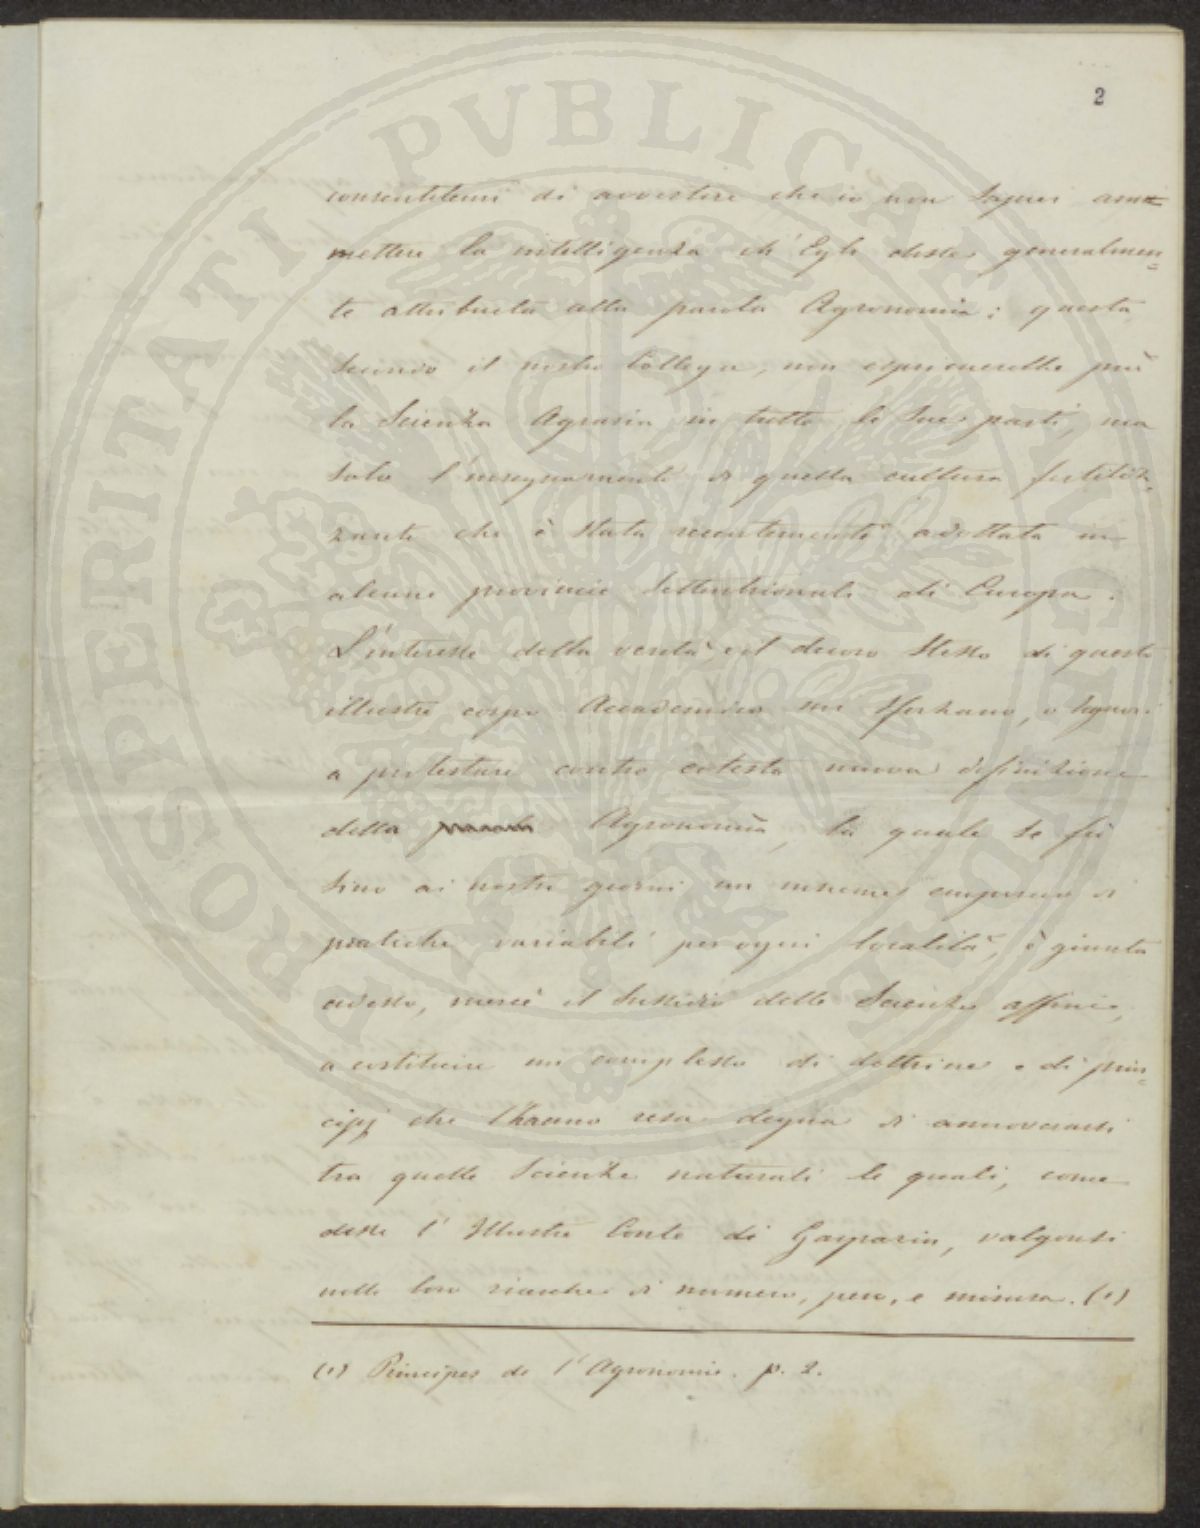 2
consentitemi di avvertire che io non saprei am=
mettere la intelligenza ch'Egli disse generalmen=
te attribuita alla parola Agronomia; questa,
secondo il nostro Collega, non esprimerebbe più
la Scienza Agraria in tutte le sue parti, ma
solo l'insegnamento di quella cultura fertiliz=
zante che è stata recentemente adottata in
alcune provincie settentrionali di Europa.
L'interesse della verità, e il decoro stesso di questo
illustre corpo Accademico mi sforzano, o Signori
a protestare contro cotesta nuova definizione
della Agronomia, la quale se fu
sino ai nostri giorni un insieme empirico di
pratiche variabili per ogni località, è giunta
adesso, mercè il sussidio delle Scienze affini,
a costituire un complesso di dottrine e di prin=
cipj che l'hanno resa degna di annoverarsi
tra quelle Scienze naturali le quali, come
disse l'Illustre Conte di Gasparin, valgonsi
nelle loro ricerche di numero, peso, e misura. (1)
(1) Principes de l'Agronomie. p. 2.
PROSPERITATI PVBLICAE AVGENDAE